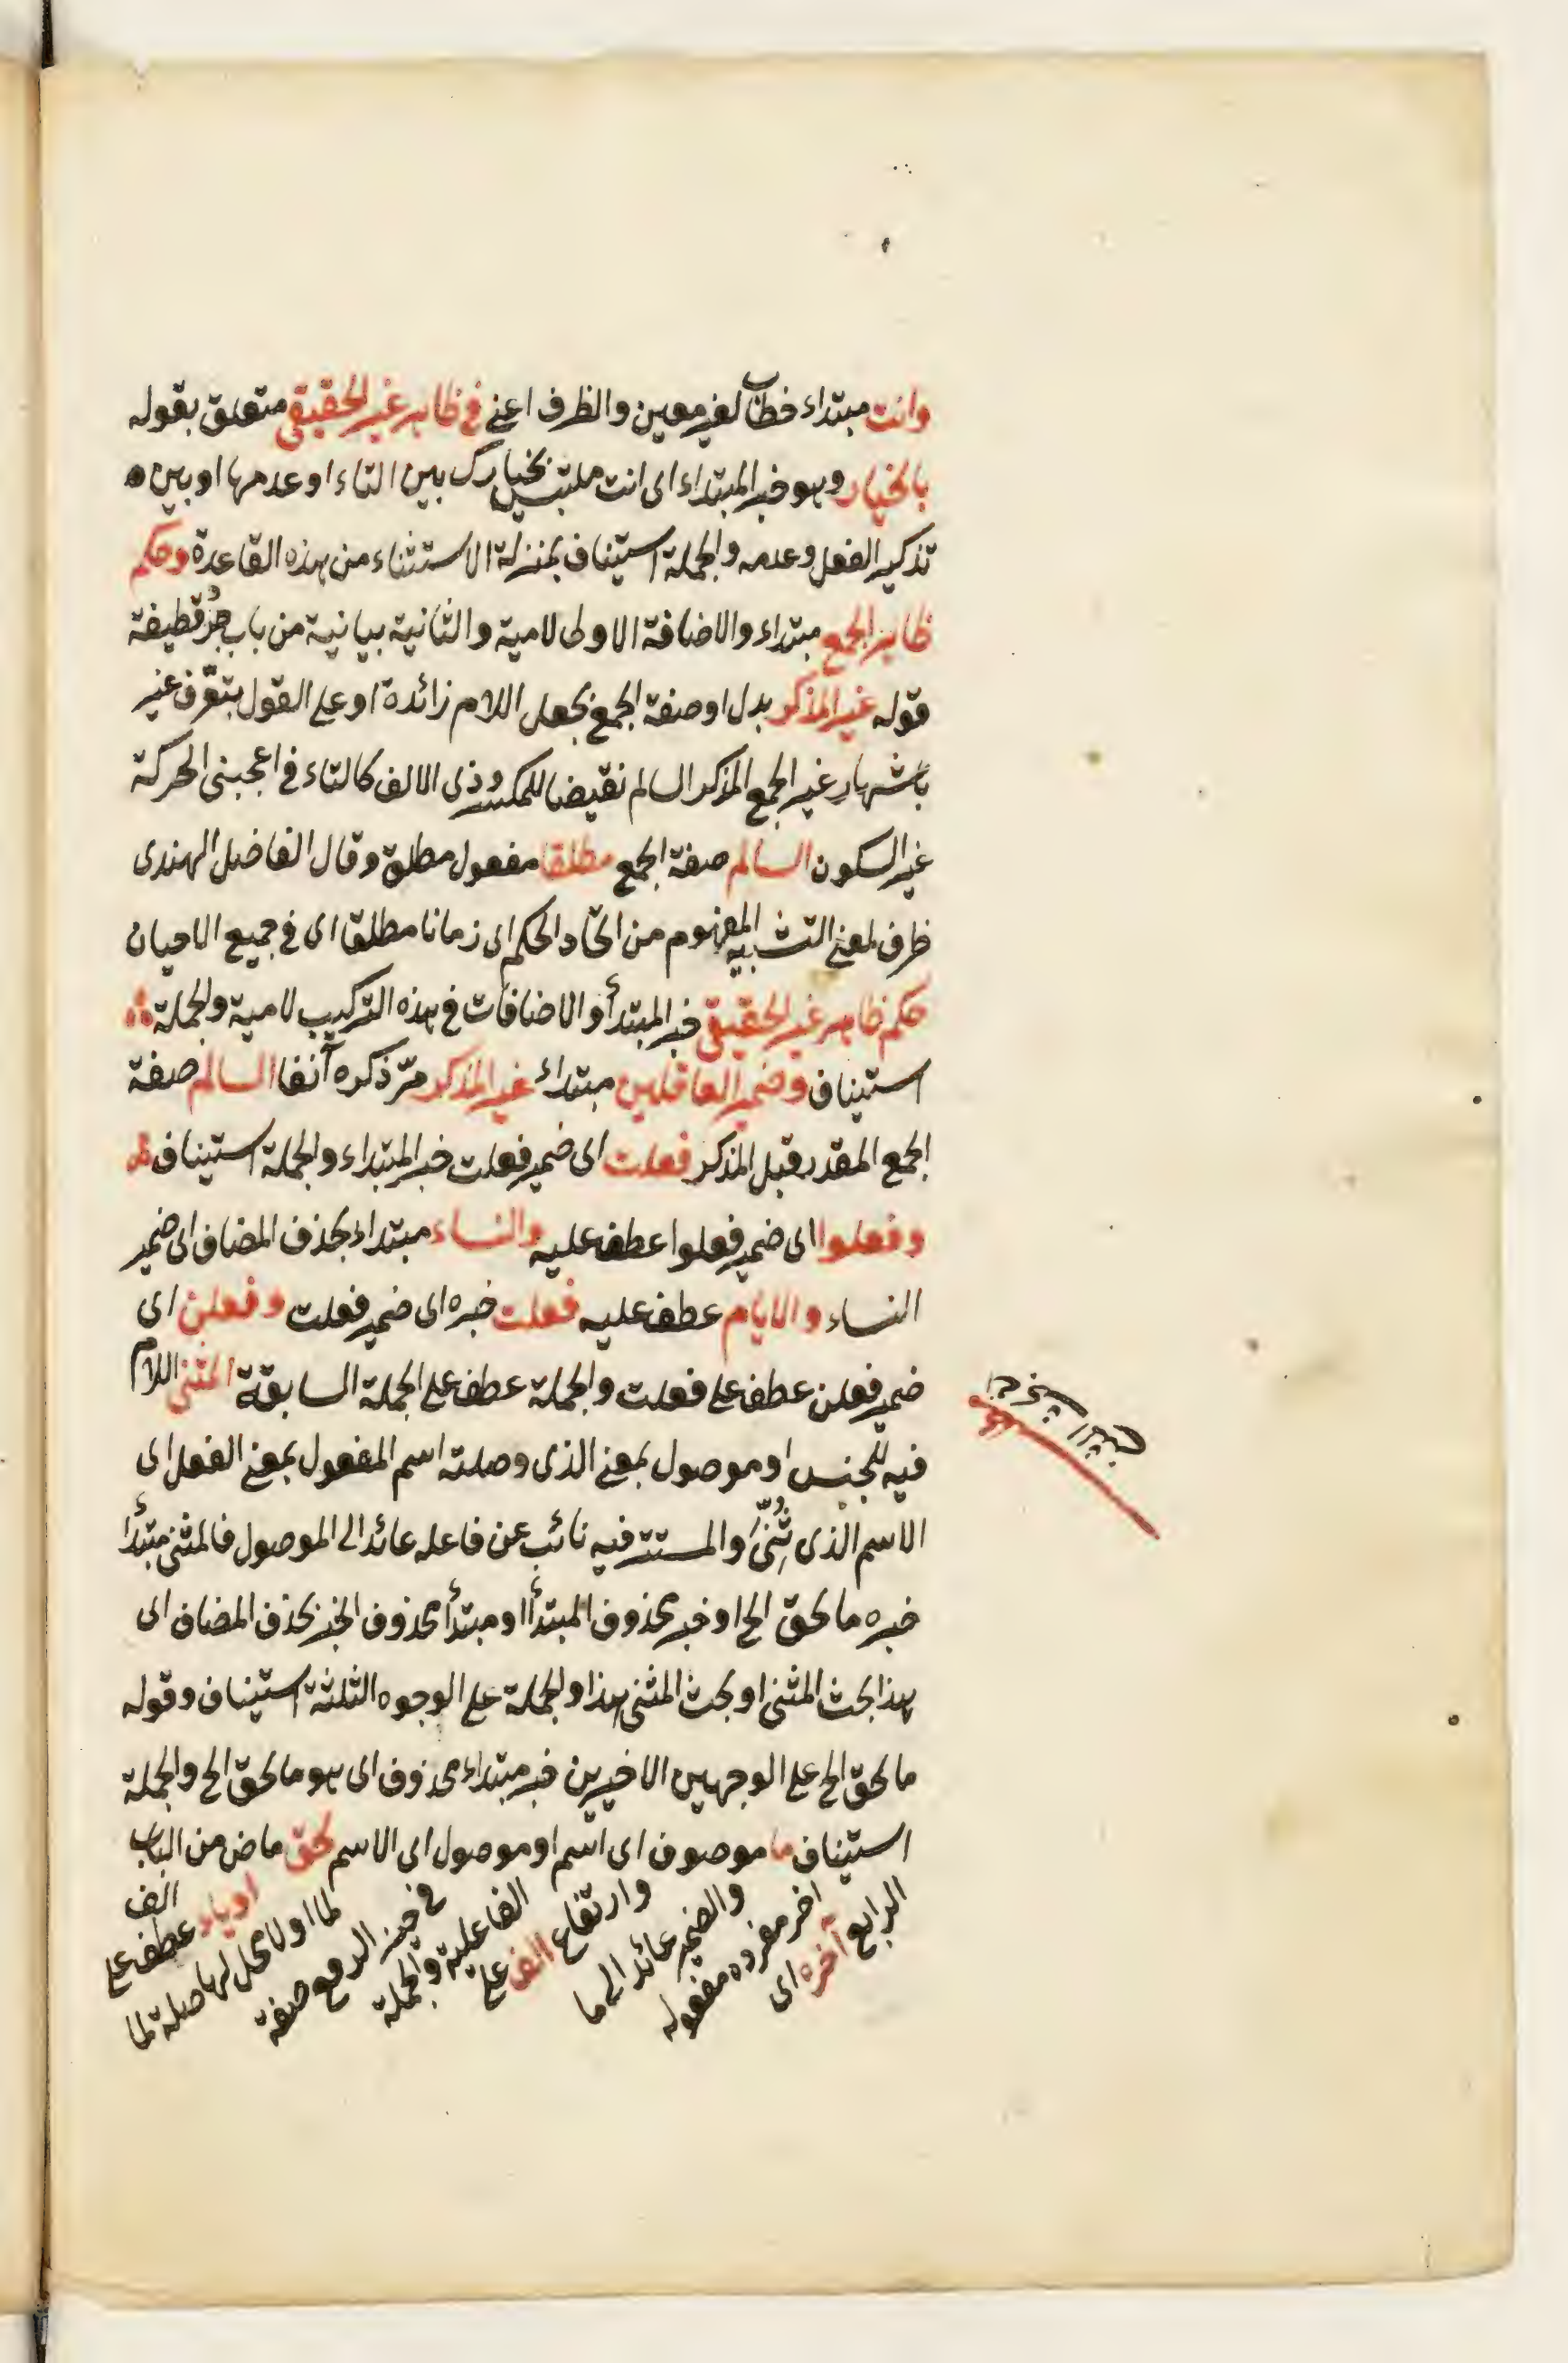 وانت مبتداء خطاب لغير معين والظرف اعنى فى ظاهر غير الحقيقى متعلق بقوله
بالخيار وهو خبر المبتداء اى انت ملتبس بخيارك بين التاء او عدمها او بين
تذكير الفعل وعدمه والجملة استيناف بمنزلة الاستثناء من هذه القاعدة وحكم
ظاهر الجمع مبتداء والاضافة الاولى لامية والثانية بيانية من باب جرد قطيفة
قوله غير المذكر بدل او صفة الجمع بجعل اللام زائدة او على القول بتعرف غير
باشتهار غير الجمع المذكر السالم نقيضا للمكسر وذى الالف كالتاء فى اعجبنى الحركة
غير السكون السالم صفة الجمع مطلقا مفعول مطلق وقال الفاضل الهندى
ظرف لمعنى التشبيه المفهوم من اتحاد الحكم اى زمانا مطلقا اى فى جميع الاحيان
حكم ظاهر غير الحقيقى خبر المبتدأ والاضافات فى هذه التركيب لامية والجملة
استيناف وضمير العاقلين مبتداء غير المذكر مرّ ذكره آنفا السالم صفة
الجمع المقدر قبل المذكر فعلت اى ضمير فعلت خبر المبتداء والجملة استيناف
وفعلوا اى ضمير فعلوا عطف عليه والنساء مبتداء بحذف المضاف اى ضمير
النساء والايام عطف عليه فعلت خبره اى ضمير فعلت وفعلن اى
ضمير فعلن عطف على فعلت والجملة عطف على الجملة السابقة المثنى اللام
فيه للجنس او موصول بمعنى الذى وصلته اسم المفعول بمعنى الفعل اى
الاسم الذى ثُنِّىَ والمستتر فيه نائب عن فاعله عائد الى الموصول فالمثنى مبتدأ
خبره ما لحق الخ او خبر محذوف المبتدأ او مبتدأ محذوف الخبر بحذف المضاف اى
هذا بحث المثنى او بحث المثنى هذا والجملة على الوجوه الثلثة استيناف وقوله
ما لحق الخ على الوجهين الاخيرين خبر مبتداء محذوف اى هو ما لحق الخ والجملة
استيناف ما موصوف اى اسم او موصول اى الاسم لحق ماض من الباب
الرابع آخره اى
آخر مفرده مفعوله
والضمير عائد الى ما
وارتفاع الف على
الفاعلية والجملة
فى حيز الرفع صفة
لما او لا محل لها صلة لما
او ياء عطف على
الف